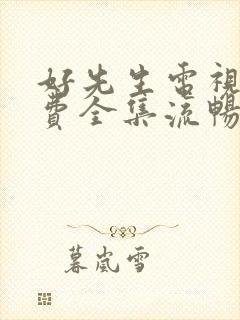 好先生電視
費全集流暢
暮嵐雪